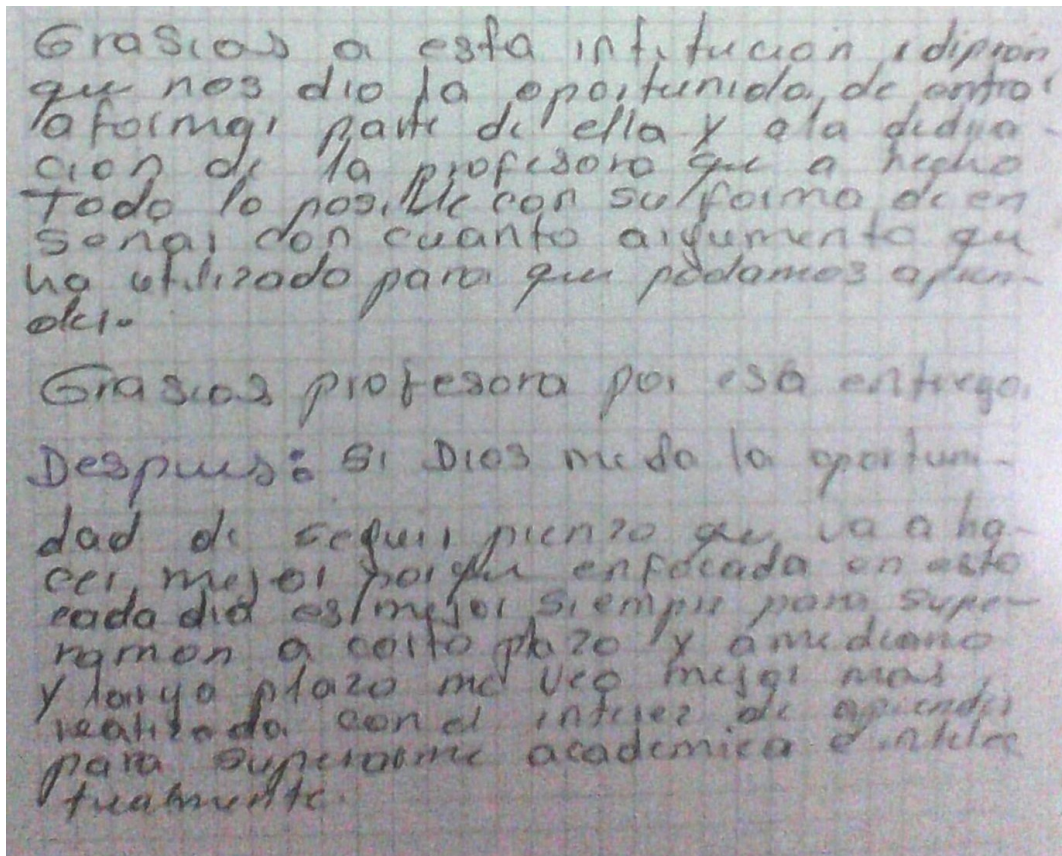 Grasias a esta intitucion idipron
que nos dio la oportunida, de entrar
a formar parte de ella y ala dedica-
cion de la profesora que a hecho
Todo lo posible con su forma de en
señar con cuanto argumento que
ha utilizado para que podamos apren-
der.
Grasias profesora por esa entrega.
Despues: Si Dios me da la oportuni-
dad de seguir pienzo que va a ha-
cer mejor porque enfocada en esto
cada dia es mejor siempre para supe-
ramon a corto plazo y a mediano
y largo plazo me veo mejor mas
realizada con el interez de aprender
para superarme academica e intelec
tualmente.